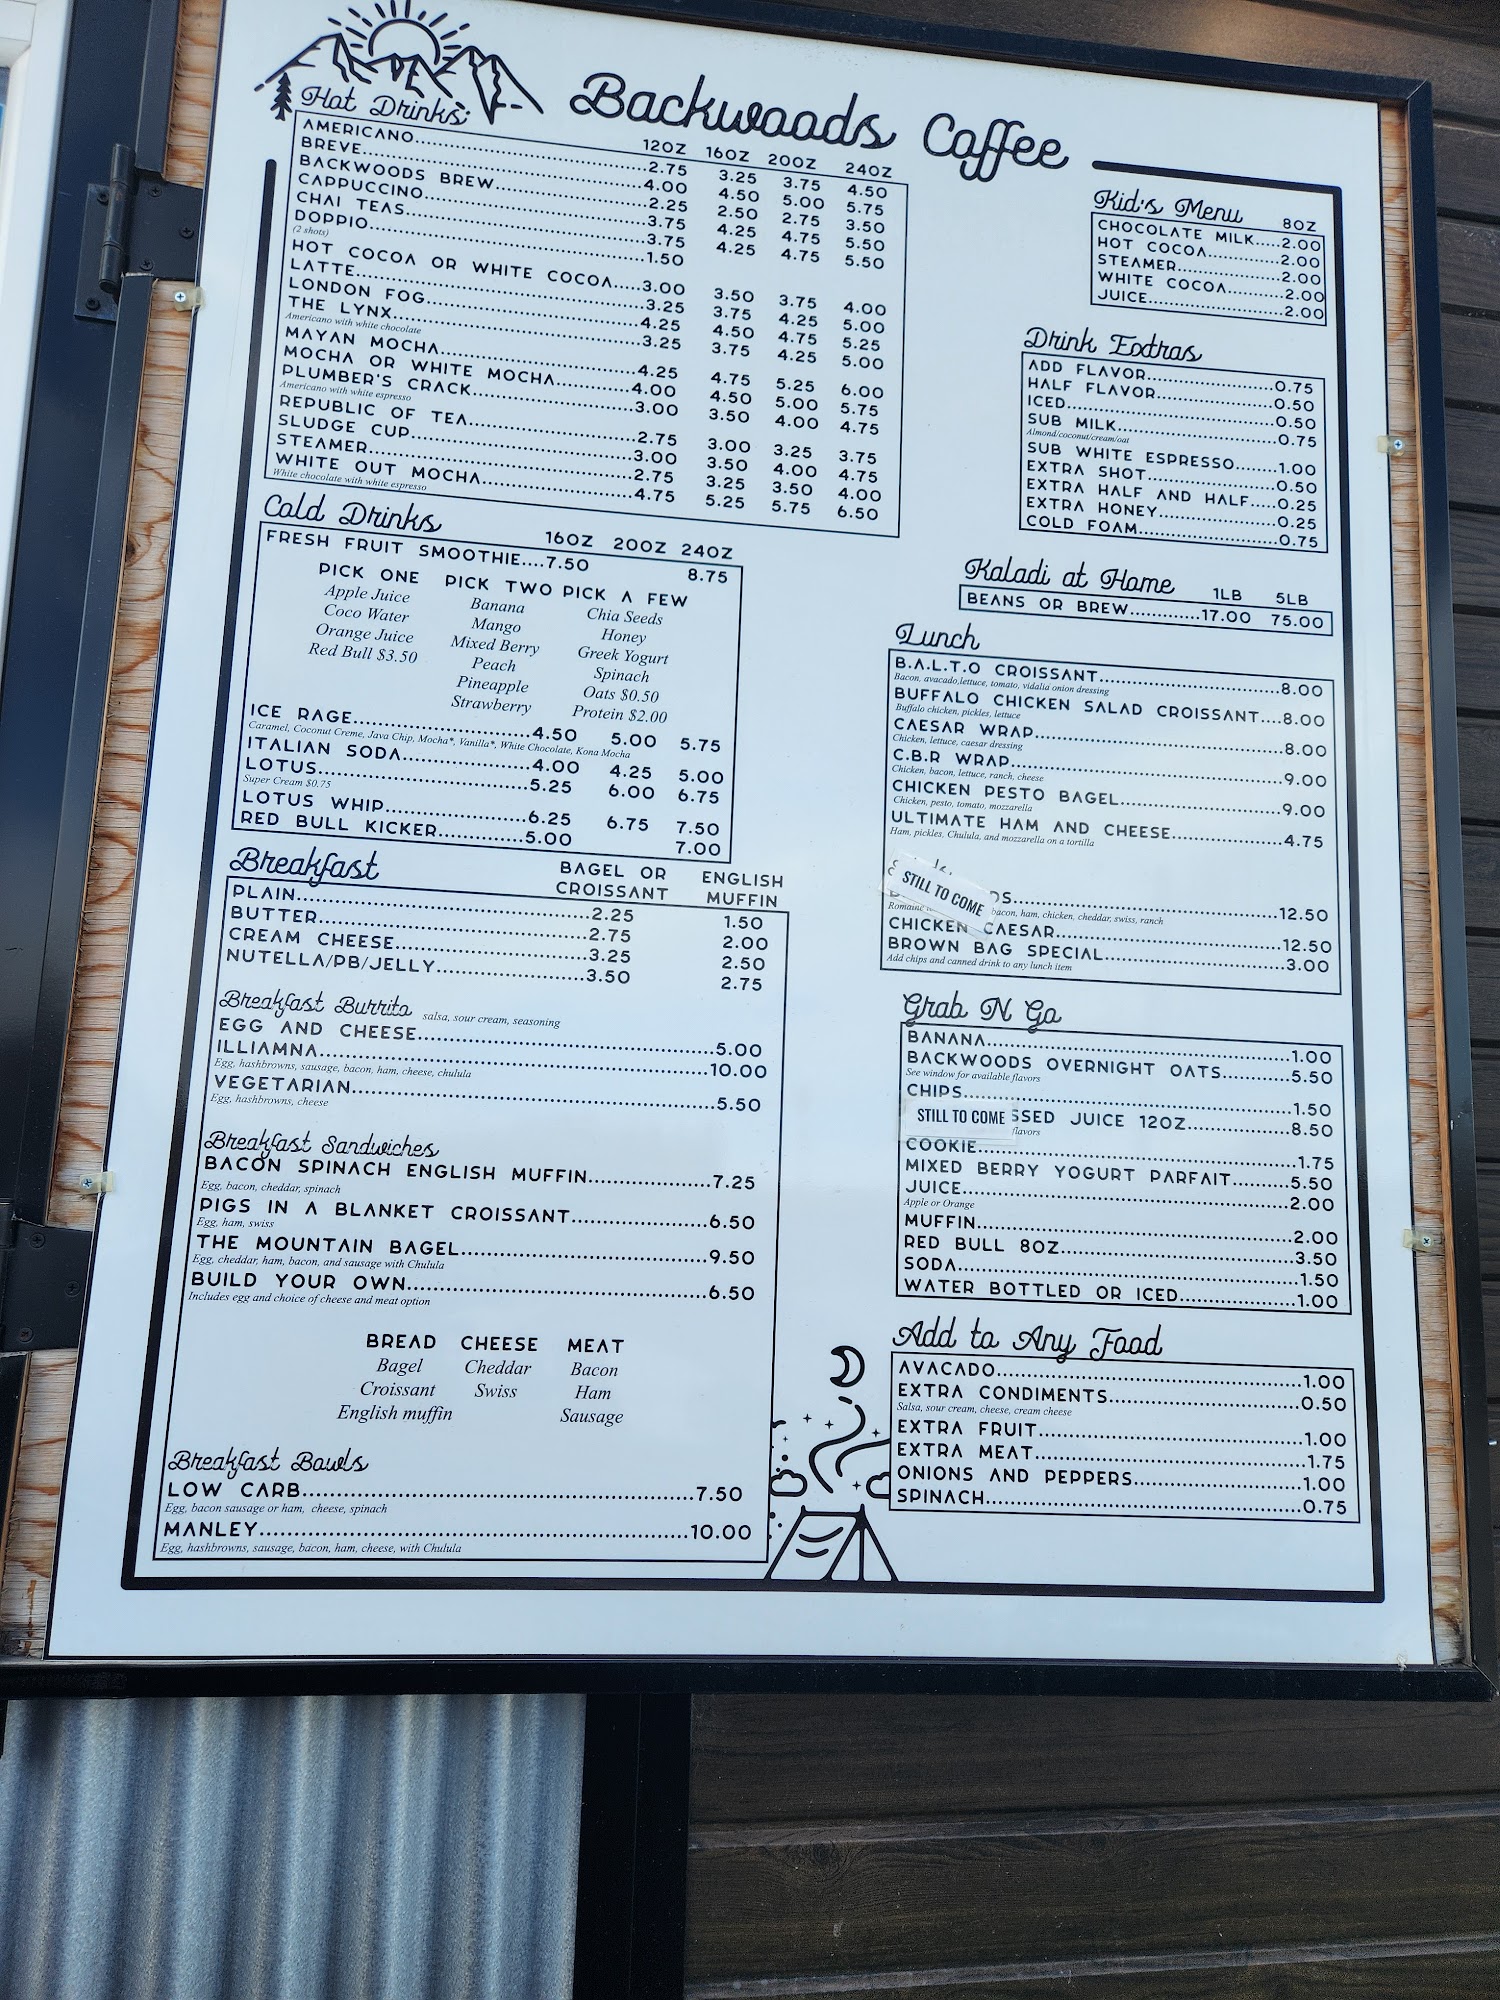 Backwoods Coffee
Hot Drinks:
12OZ 16OZ 20OZ 24OZ
AMERICANO 2.75 3.25 3.75 4.50
BREVE 4.00 4.50 5.00 5.75
BACKWOODS BREW 2.25 2.50 2.75 3.50
CAPPUCCINO 3.75 4.25 4.75 5.50
CHAI TEAS 3.75 4.25 4.75 5.50
DOPPIO 1.50
(2 shots)
HOT COCOA OR WHITE COCOA 3.00 3.50 3.75 4.00
LATTE 3.25 3.75 4.25 5.00
LONDON FOG 4.25 4.50 4.75 5.25
THE LYNX 3.25 3.75 4.25 5.00
Americano with white chocolate
MAYAN MOCHA 4.25 4.75 5.25 6.00
MOCHA OR WHITE MOCHA 4.00 4.50 5.00 5.75
PLUMBER'S CRACK 3.00 3.50 4.00 4.75
Americano with white espresso
REPUBLIC OF TEA 2.75 3.00 3.25 3.75
SLUDGE CUP 3.00 3.50 4.00 4.75
STEAMER 2.75 3.25 3.50 4.00
WHITE OUT MOCHA 4.75 5.25 5.75 6.50
White chocolate with white espresso
Cold Drinks
16OZ 20OZ 24OZ
FRESH FRUIT SMOOTHIE....7.50 8.75
PICK ONE PICK TWO PICK A FEW
Apple Juice Banana Chia Seeds
Coco Water Mango Honey
Orange Juice Mixed Berry Greek Yogurt
Red Bull $3.50 Peach Spinach
Pineapple Oats $0.50
Strawberry Protein $2.00
ICE RAGE 4.50 5.00 5.75
Caramel, Coconut Creme, Java Chip, Mocha*, Vanilla*, White Chocolate, Kona Mocha
ITALIAN SODA 4.00 4.25 5.00
LOTUS 5.25 6.00 6.75
Super Cream $0.75
LOTUS WHIP 6.25 6.75 7.50
RED BULL KICKER 5.00 7.00
Breakfast
BAGEL OR CROISSANT ENGLISH MUFFIN
PLAIN 2.25 1.50
BUTTER 2.75 2.00
CREAM CHEESE 3.25 2.50
NUTELLA/PB/JELLY 3.50 2.75
Breakfast Burrito salsa, sour cream, seasoning
EGG AND CHEESE 5.00
ILLIAMNA 10.00
Egg, hashbrowns, sausage, bacon, ham, cheese, chulula
VEGETARIAN 5.50
Egg, hashbrowns, cheese
Breakfast Sandwiches
BACON SPINACH ENGLISH MUFFIN 7.25
Egg, bacon, cheddar, spinach
PIGS IN A BLANKET CROISSANT 6.50
Egg, ham, swiss
THE MOUNTAIN BAGEL 9.50
Egg, cheddar, ham, bacon, and sausage with Chulula
BUILD YOUR OWN 6.50
Includes egg and choice of cheese and meat option
BREAD CHEESE MEAT
Bagel Cheddar Bacon
Croissant Swiss Ham
English muffin Sausage
Breakfast Bowls
LOW CARB 7.50
Egg, bacon sausage or ham, cheese, spinach
MANLEY 10.00
Egg, hashbrowns, sausage, bacon, ham, cheese, with Chulula
Kid's Menu 8OZ
CHOCOLATE MILK 2.00
HOT COCOA 2.00
STEAMER 2.00
WHITE COCOA 2.00
JUICE 2.00
Drink Extras
ADD FLAVOR 0.75
HALF FLAVOR 0.50
ICED 0.50
SUB MILK 0.75
Almond/coconut/cream/oat
SUB WHITE ESPRESSO 1.00
EXTRA SHOT 0.50
EXTRA HALF AND HALF 0.25
EXTRA HONEY 0.25
COLD FOAM 0.75
Kaladi at Home 1LB 5LB
BEANS OR BREW 17.00 75.00
Lunch
B.A.L.T.O CROISSANT 8.00
Bacon, avacado,lettuce, tomato, vidalia onion dressing
BUFFALO CHICKEN SALAD CROISSANT 8.00
Buffalo chicken, pickles, lettuce
CAESAR WRAP 8.00
Chicken, lettuce, caesar dressing
C.B.R WRAP 9.00
Chicken, bacon, lettuce, ranch, cheese
CHICKEN PESTO BAGEL 9.00
Chicken, pesto, tomato, mozzarella
ULTIMATE HAM AND CHEESE 4.75
Ham, pickles, Chulula, and mozzarella on a tortilla
STILL TO COME
DS 12.50
Romaine bacon, ham, chicken, cheddar, swiss, ranch
CHICKEN CAESAR 12.50
BROWN BAG SPECIAL 3.00
Add chips and canned drink to any lunch item
Grab N Go
BANANA 1.00
BACKWOODS OVERNIGHT OATS 5.50
See window for available flavors
CHIPS 1.50
STILL TO COME SSED JUICE 12OZ 8.50
flavors
COOKIE 1.75
MIXED BERRY YOGURT PARFAIT 5.50
JUICE 2.00
Apple or Orange
MUFFIN 2.00
RED BULL 8OZ 3.50
SODA 1.50
WATER BOTTLED OR ICED 1.00
Add to Any Food
AVACADO 1.00
EXTRA CONDIMENTS 0.50
Salsa, sour cream, cheese, cream cheese
EXTRA FRUIT 1.00
EXTRA MEAT 1.75
ONIONS AND PEPPERS 1.00
SPINACH 0.75